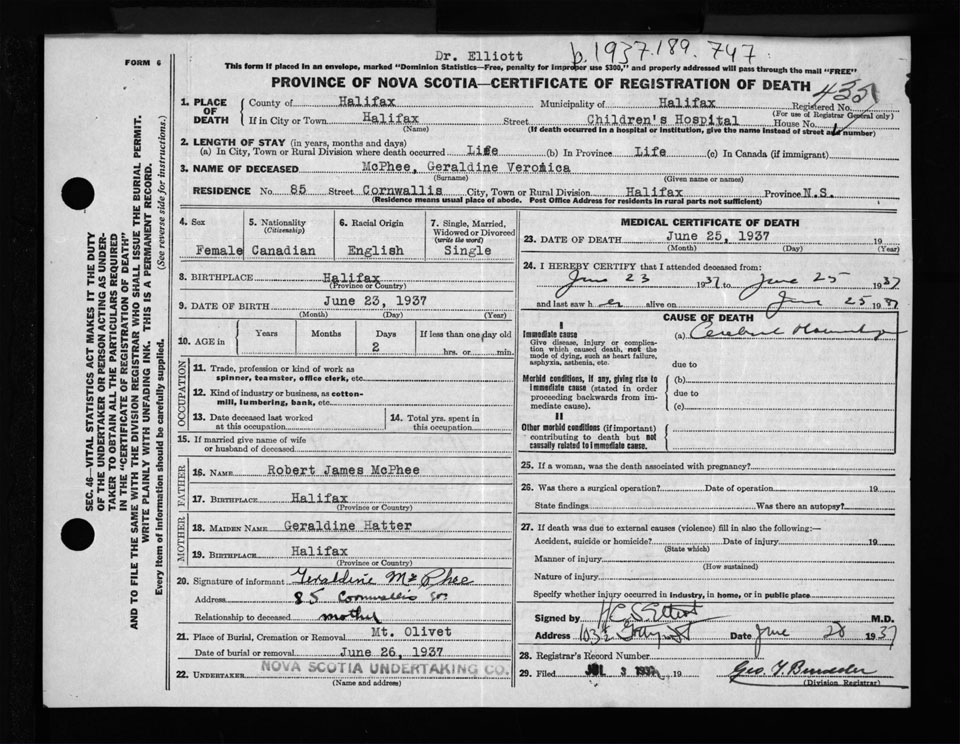 Dr. Elliott
b. 1937.189.747
FORM 6
This form if placed in an envelope, marked "Dominion Statistics—Free, penalty for improper use $300," and properly addressed will pass through the mail "FREE"
PROVINCE OF NOVA SCOTIA—CERTIFICATE OF REGISTRATION OF DEATH
435
1. PLACE OF DEATH
County of Halifax Municipality of Halifax Registered No.
(For use of Registrar General only)
If in City or Town Halifax Street Children's Hospital House No.
(Name) (If death occurred in a hospital or institution, give the name instead of street and number)
2. LENGTH OF STAY (in years, months and days)
(a) In City, Town or Rural Division where death occurred Life (b) In Province Life (c) In Canada (if immigrant)
3. NAME OF DECEASED McPhee, Geraldine Veronica
(Surname) (Given name or names)
RESIDENCE No. 85 Street Cornwallis City, Town or Rural Division Halifax Province N.S.
(Residence means usual place of abode. Post Office Address for residents in rural parts not sufficient)
4. Sex 5. Nationality (Citizenship) 6. Racial Origin 7. Single, Married, Widowed or Divorced (write the word)
Female Canadian English Single
8. BIRTHPLACE Halifax
(Province or Country)
9. DATE OF BIRTH June 23, 1937
(Month) (Day) (Year)
10. AGE in Years Months Days If less than one day old
2 hrs. or min.
OCCUPATION
11. Trade, profession or kind of work as spinner, teamster, office clerk, etc.
12. Kind of industry or business, as cotton-mill, lumbering, bank, etc.
13. Date deceased last worked at this occupation
14. Total yrs. spent in this occupation
15. If married give name of wife or husband of deceased
FATHER
16. NAME Robert James McPhee
17. BIRTHPLACE Halifax
(Province or Country)
MOTHER
18. MAIDEN NAME Geraldine Hatter
19. BIRTHPLACE Halifax
(Province or Country)
20. Signature of informant Geraldine McPhee
Address 85 Cornwallis St.
Relationship to deceased mother
21. Place of Burial, Cremation or Removal Mt. Olivet
Date of burial or removal June 26, 1937
22. UNDERTAKER NOVA SCOTIA UNDERTAKING CO.
(Name and address)
MEDICAL CERTIFICATE OF DEATH
23. DATE OF DEATH June 25, 1937 19
(Month) (Day) (Year)
24. I HEREBY CERTIFY that I attended deceased from:
June 23 1937 to June 25 1937
and last saw h er alive on June 25 1937
CAUSE OF DEATH
I
Immediate cause (a) Cerebral
Give disease, injury or complication which caused death, not the mode of dying, such as heart failure, asphyxia, asthenia, etc.
due to
Morbid conditions, if any, giving rise to immediate cause (stated in order proceeding backwards from immediate cause).
(b)
due to
(c)
II
Other morbid conditions (if important) contributing to death but not causally related to immediate cause.
25. If a woman, was the death associated with pregnancy?
26. Was there a surgical operation? Date of operation 19
State findings Was there an autopsy?
27. If death was due to external causes (violence) fill in also the following:—
Accident, suicide or homicide? Date of injury 19
(State which)
Manner of injury
(How sustained)
Nature of injury
Specify whether injury occurred in industry, in home, or in public place
Signed by M.D.
Address Date June 28 1937
28. Registrar's Record Number
29. Filed JUL 3 1937 19
(Division Registrar)
SEC. 46—VITAL STATISTICS ACT MAKES IT THE DUTY
OF THE UNDERTAKER OR PERSON ACTING AS UNDER-
TAKER TO OBTAIN ALL THE PARTICULARS REQUIRED
IN THE "CERTIFICATE OF REGISTRATION OF DEATH"
AND TO FILE THE SAME WITH THE DIVISION REGISTRAR WHO SHALL ISSUE THE BURIAL PERMIT.
WRITE PLAINLY WITH UNFADING INK. THIS IS A PERMANENT RECORD.
Every item of information should be carefully supplied. (See reverse side for instructions.)